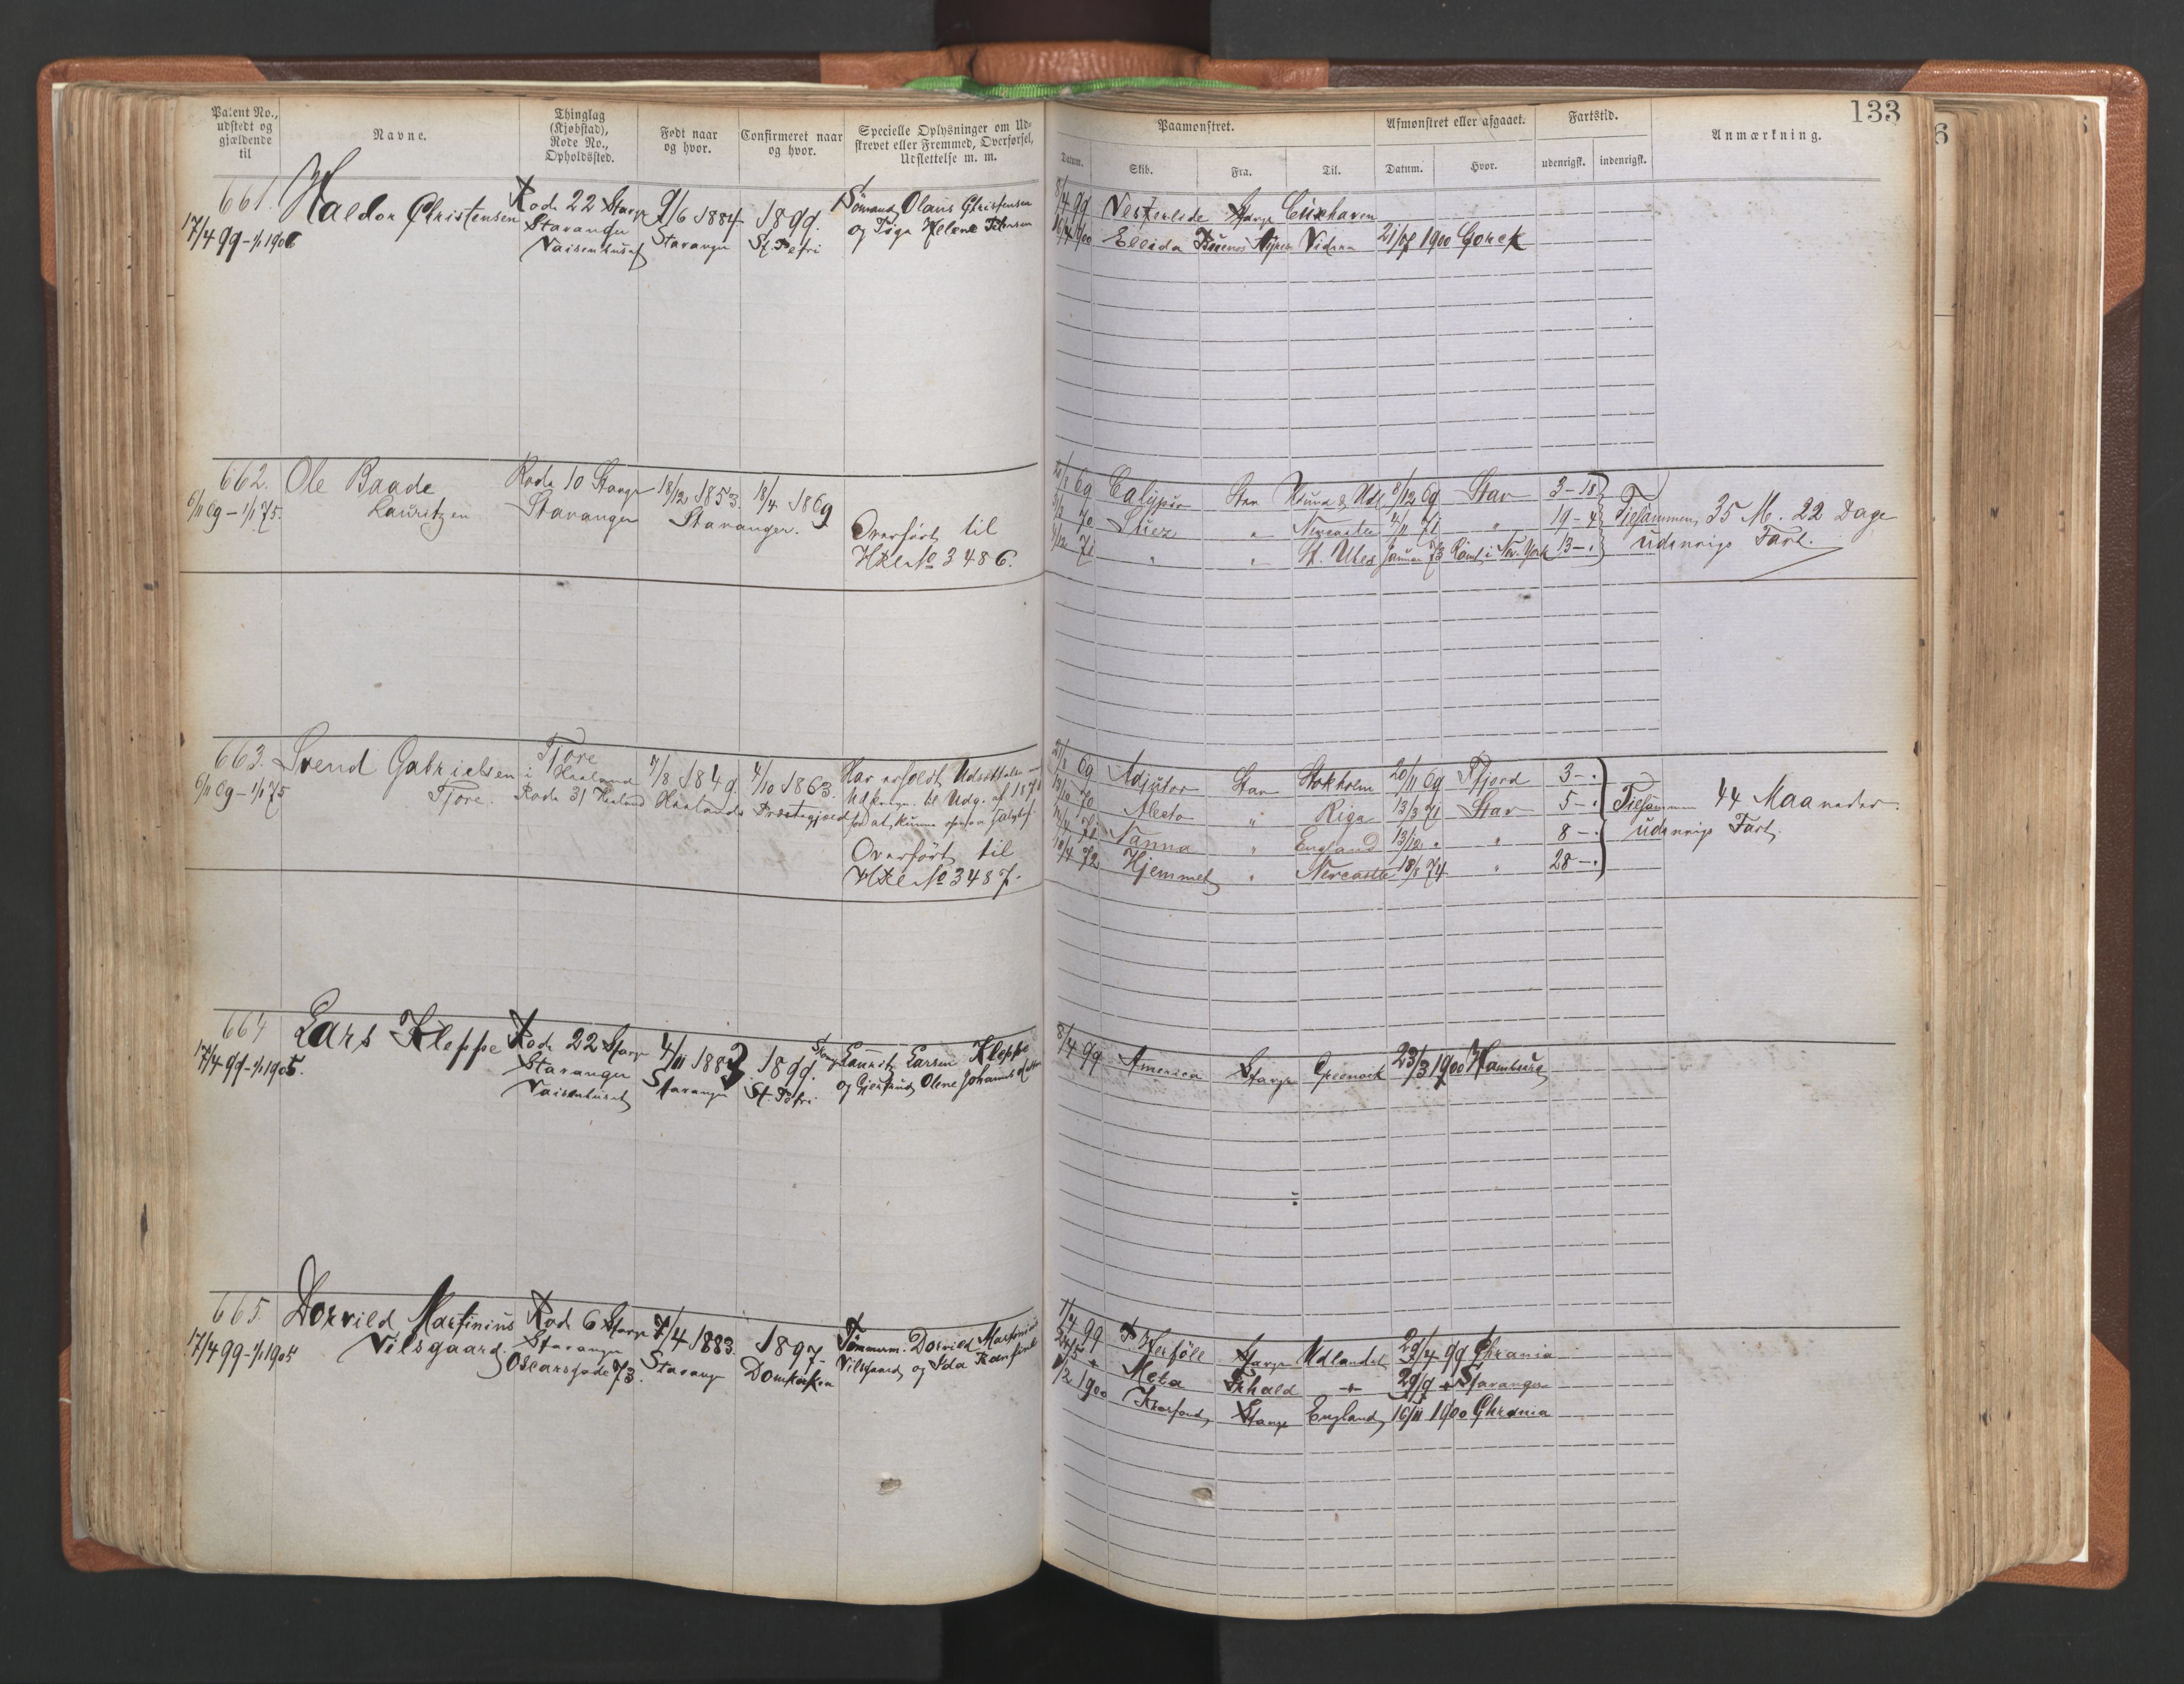 133
Patent No., udstedt og gjældende til
Navne.
Thinglag (Kjøbstad), Rode No., Opholdssted.
Født naar og hvor.
Confirmeret naar og hvor.
Specielle Oplysninger om Udskrevet eller Fremmed, Overførsel, Udslettelse m. m.
Paamønstret.
Afmønstret eller afgaaet.
Fartstid.
Anmærkning.
Datum. Skib. Fra. Til. Datum. Hvor. udenrigsk. indenrigsk.
661. Haldor Christensen Rode 22 Stavgr 9/6 1884 1899. Sømand Olaus Christensen
17/4 99 - 1/1 1906 Stavanger Stavanger St. Petri og Helene Petersen
Vaisenhuset
8/4 99 Vesterlide Stavgr Cuxhaven
16/4 1900 Ellida Buenos Ayres 21/8 1900
662. Ole Baade Rode 10 Stavgr 18/12 1853. 18/4 1869
6/11 69 - 1/1 75. Lauritzen Stavanger Stavanger.
Overført til
Hdl No 3486.
69 Calypso Stav 8/12 69 Stav 3 - 18
70 Suez " Newcastle 4/11 71 " 19 - 4 Tilsammen 35 M. 22 Dage
4/12 71 " " St. Ubes Januar 73 Rømt i New York 13 - . udenrigs Fart.
663. Svend Gabrielsen i Tjore 7/8 1849. 4/10 1863. Har erholdt
6/11 69 - 1/1 75 Tjore. Haaland Rode 31 Haaland Haalands Præstegjeld Udg. af 1870
Overført til
Hdl No 3487.
69 Adjutor Stav Stokholm 20/11 69 Ffjord 3 - .
70 Alecto " Riga 13/3 71 Stav 5 - . Tilsammen 44 Maaneder
71 Nanna " England 13/12 " " 8 - . udenrigs Fart.
10/4 72 Hjemmet " Newcastle 18/8 74 " 28 - .
664 Lars Kleppe Rode 22 Stavgr 4/11 1883 1899. Lauritz Larsen Kleppe
17/4 99 - 1/1 1905. Stavanger Stavanger St. Petri og Gjertrud Olene
Vaisenhuset
8/4 99 America Stavgr Greenock 23/3 1900 Hamburg
665 Dorvild Martinius Rode 6 Stavgr 7/4 1883. 1897. Tømmerm. Dorvild Martinius
17/4 99 - 1/1 1905 Nilsgaard. Stavanger Stavanger Domkirken Nilsgaard og Ida
Oscarsgade 73.
99 Stavgr Udlandet 29/4 99 Chrania
24/5 " Meta Frhald " 29/9 " Stavanger
1/2 1900 Stavgr England 16/11 1900 Chrania